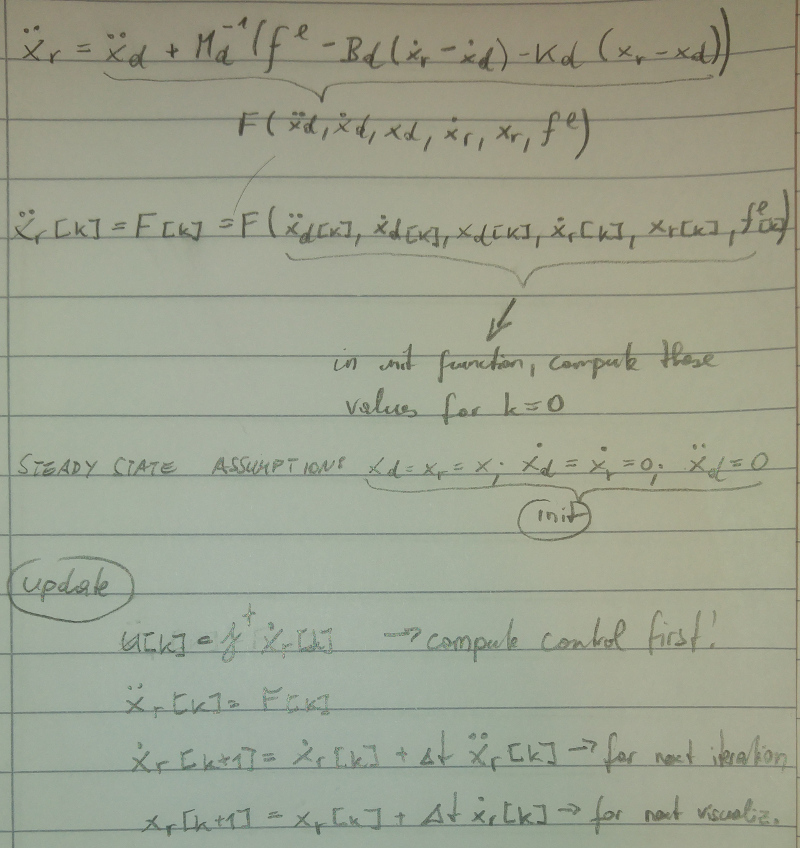 ẍr = ẍd + Md⁻¹(fᵉ - Bd(ẋr - ẋd) - Kd (xr - xd))
F(ẍd, ẋd, xd, ẋr, xr, fᵉ)
ẍr[k] = F[k] = F(ẍd[k], ẋd[k], xd[k], ẋr[k], xr[k], fᵉ[k])
in init function, compute these
values for k=0
STEADY STATE ASSUMPTION: xd = xr = x; ẋd = ẋr = 0; ẍd = 0
init
update
u[k] = J⁺ ẋr[k] → compute control first!
ẍr[k] = F[k]
ẋr[k+1] = ẋr[k] + Δt ẍr[k] → for next iteration
xr[k+1] = xr[k] + Δt ẋr[k] → for next visualiz.